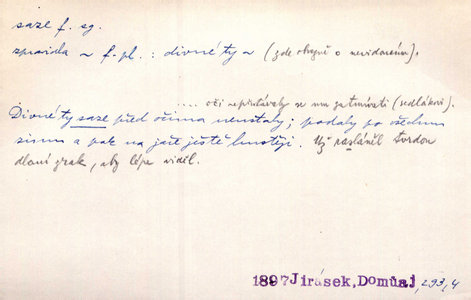 saze f. sg.
zpravidla ~ f. pl. : divné ty ~ (zde obrazně o nevidomém).
.... oči nepřivkávaly se mu za tmívati (sedlákovi).
Divné ty saze před očima neustaly; padaly po všechnu
zimu a pak na jaře ještě hustěji. Už zasláněl tvrdou
dlaní zrak, aby lépe viděl.
1897 Jirásek, Domů a j , 293, 4